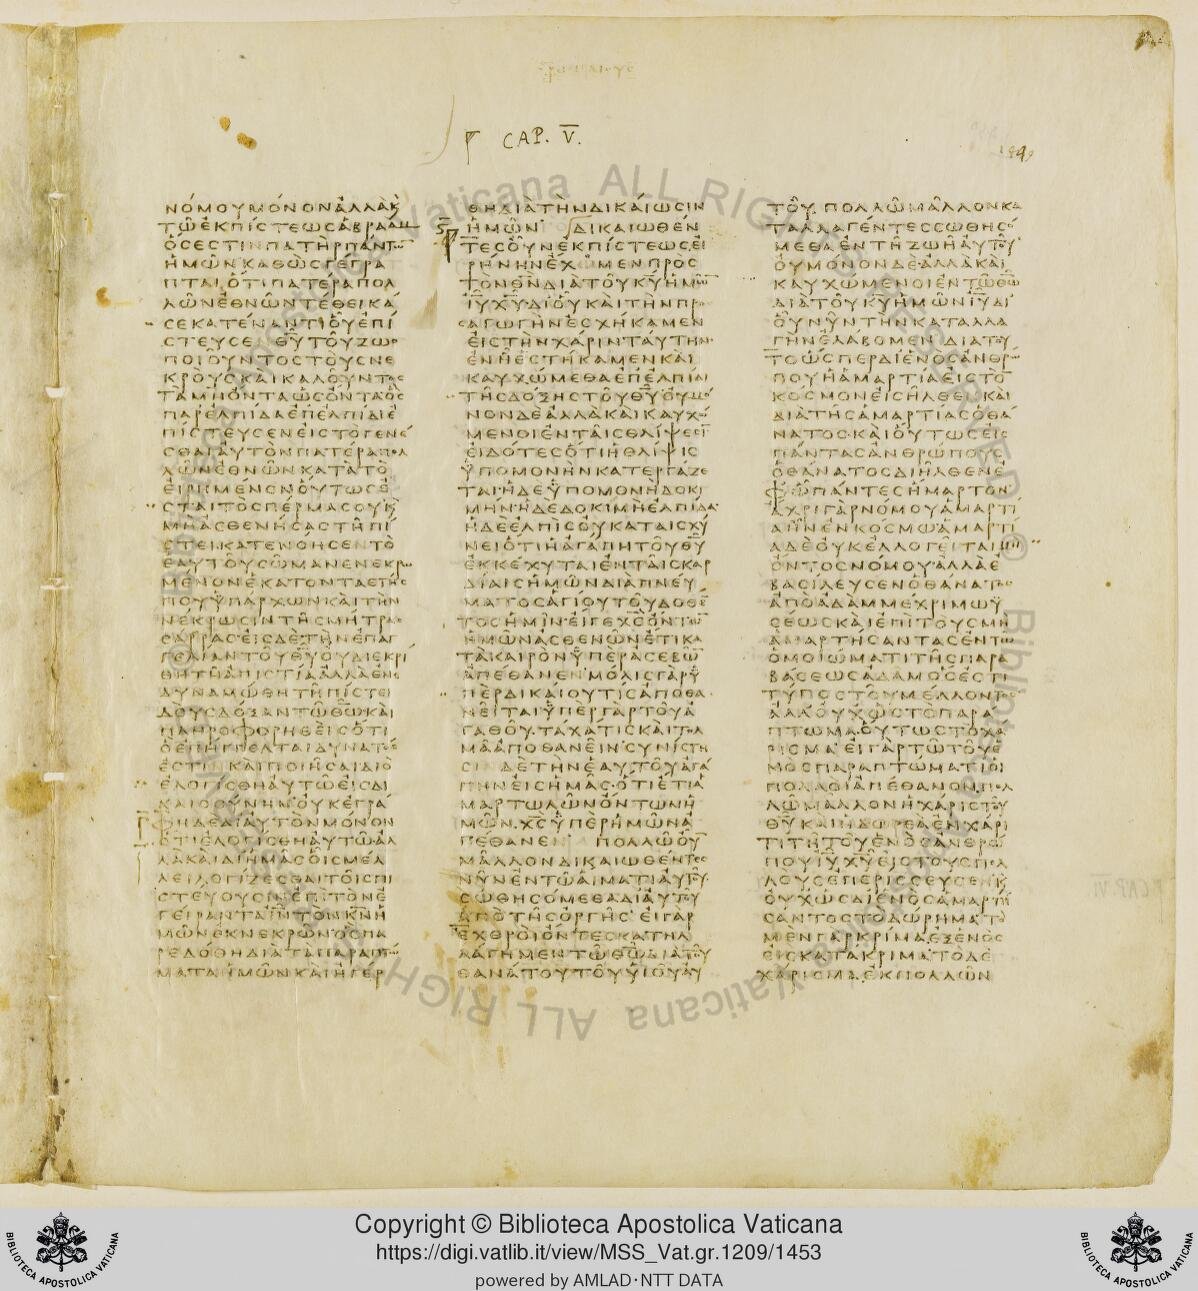 CAP. V.
ΝΟΜΟΥ ΜΟΝΟΝ ΑΛΛΑ Κ
ΤΩ ΕΚ ΠΙΣΤΕΩΣ ΑΒΡΑΑΜ
ΟΣ ΕΣΤΙΝ ΠΑΤΗΡ ΠΑΝΤΩ
ΗΜΩΝ ΚΑΘΩΣ ΓΕΓΡΑ
ΠΤΑΙ ΟΤΙ ΠΑΤΕΡΑ ΠΟΛ
ΛΩΝ ΕΘΝΩΝ ΤΕΘΕΙΚΑ
ΣΕ ΚΑΤΕΝΑΝΤΙ ΟΥ ΕΠΙ
ΣΤΕΥΣΕ ΘΥ ΤΟΥ ΖΩΟ
ΠΟΙΟΥΝΤΟΣ ΤΟΥΣ ΝΕ
ΚΡΟΥΣ ΚΑΙ ΚΑΛΟΥΝΤΟΣ
ΤΑ ΜΗ ΟΝΤΑ ΩΣ ΟΝΤΑ ΟΣ
ΠΑΡ ΕΛΠΙΔΑ ΕΠ ΕΛΠΙΔΙ Ε
ΠΙΣΤΕΥΣΕΝ ΕΙΣ ΤΟ ΓΕΝΕ
ΣΘΑΙ ΑΥΤΟΝ ΠΑΤΕΡΑ ΠΟΛ
ΛΩΝ ΕΘΝΩΝ ΚΑΤΑ ΤΟ
ΕΙΡΗΜΕΝΟΝ ΟΥΤΩΣ Ε
ΣΤΑΙ ΤΟ ΣΠΕΡΜΑ ΣΟΥ Κ
ΜΗ ΑΣΘΕΝΗΣΑΣ ΤΗ ΠΙ
ΣΤΕΙ ΚΑΤΕΝΟΗΣΕΝ ΤΟ
ΕΑΥΤΟΥ ΣΩΜΑ ΝΕΝΕΚΡΩ
ΜΕΝΟΝ ΕΚΑΤΟΝΤΑΕΤΗΣ
ΠΟΥ ΥΠΑΡΧΩΝ ΚΑΙ ΤΗΝ
ΝΕΚΡΩΣΙΝ ΤΗΣ ΜΗΤΡΑΣ
ΣΑΡΡΑΣ ΕΙΣ ΔΕ ΤΗΝ ΕΠΑΓ
ΓΕΛΙΑΝ ΤΟΥ ΘΥ ΟΥ ΔΙΕΚΡΙ
ΘΗ ΤΗ ΑΠΙΣΤΙΑ ΑΛΛΑ ΕΝΕ
ΔΥΝΑΜΩΘΗ ΤΗ ΠΙΣΤΕΙ
ΔΟΥΣ ΔΟΞΑΝ ΤΩ ΘΩ ΚΑΙ
ΠΛΗΡΟΦΟΡΗΘΕΙΣ ΟΤΙ
Ο ΕΠΗΓΓΕΛΤΑΙ ΔΥΝΑΤΟΣ
ΕΣΤΙΝ ΚΑΙ ΠΟΙΗΣΑΙ ΔΙΟ
ΕΛΟΓΙΣΘΗ ΑΥΤΩ ΕΙΣ ΔΙ
ΚΑΙΟΣΥΝΗΝ ΟΥΚ ΕΓΡΑ
ΦΗ ΔΕ ΔΙ ΑΥΤΟΝ ΜΟΝΟΝ
ΟΤΙ ΕΛΟΓΙΣΘΗ ΑΥΤΩ ΑΛ
ΛΑ ΚΑΙ ΔΙ ΗΜΑΣ ΟΙΣ ΜΕΛ
ΛΕΙ ΛΟΓΙΖΕΣΘΑΙ ΤΟΙΣ ΠΙ
ΣΤΕΥΟΥΣΙΝ ΕΠΙ ΤΟΝ Ε
ΓΕΙΡΑΝΤΑ ΙΝ ΤΟΝ ΚΝ Η
ΜΩΝ ΕΚ ΝΕΚΡΩΝ ΟΣ ΠΑ
ΡΕΔΟΘΗ ΔΙΑ ΤΑ ΠΑΡΑΠΤΩ
ΜΑΤΑ ΗΜΩΝ ΚΑΙ ΗΓΕΡ
ΘΗ ΔΙΑ ΤΗΝ ΔΙΚΑΙΩΣΙΝ
ΗΜΩΝ ΔΙΚΑΙΩΘΕΝ
ΤΕΣ ΟΥΝ ΕΚ ΠΙΣΤΕΩΣ ΕΙ
ΡΗΝΗΝ ΕΧΩΜΕΝ ΠΡΟΣ
ΤΟΝ ΘΝ ΔΙΑ ΤΟΥ ΚΥ ΗΜΩ
ΙΥ ΧΥ ΔΙ ΟΥ ΚΑΙ ΤΗΝ ΠΡΟ
ΣΑΓΩΓΗΝ ΕΣΧΗΚΑΜΕΝ
ΕΙΣ ΤΗΝ ΧΑΡΙΝ ΤΑΥΤΗΝ
ΕΝ Η ΕΣΤΗΚΑΜΕΝ ΚΑΙ
ΚΑΥΧΩΜΕΘΑ ΕΠ ΕΛΠΙΔΙ
ΤΗΣ ΔΟΞΗΣ ΤΟΥ ΘΥ ΟΥ ΜΟ
ΝΟΝ ΔΕ ΑΛΛΑ ΚΑΙ ΚΑΥΧΩ
ΜΕΝΟΙ ΕΝ ΤΑΙΣ ΘΛΙΨΕΣΙ
ΕΙΔΟΤΕΣ ΟΤΙ Η ΘΛΙΨΙΣ
ΥΠΟΜΟΝΗΝ ΚΑΤΕΡΓΑΖΕ
ΤΑΙ Η ΔΕ ΥΠΟΜΟΝΗ ΔΟΚΙ
ΜΗΝ Η ΔΕ ΔΟΚΙΜΗ ΕΛΠΙΔΑ
Η ΔΕ ΕΛΠΙΣ ΟΥ ΚΑΤΑΙΣΧΥ
ΝΕΙ ΟΤΙ Η ΑΓΑΠΗ ΤΟΥ ΘΥ
ΕΚΚΕΧΥΤΑΙ ΕΝ ΤΑΙΣ ΚΑΡ
ΔΙΑΙΣ ΗΜΩΝ ΔΙΑ ΠΝΕΥ
ΜΑΤΟΣ ΑΓΙΟΥ ΤΟΥ ΔΟΘΕ
ΤΟΣ ΗΜΙΝ ΕΙ ΓΕ ΧΣ ΟΝΤΩ
ΗΜΩΝ ΑΣΘΕΝΩΝ ΕΤΙ ΚΑ
ΤΑ ΚΑΙΡΟΝ ΥΠΕΡ ΑΣΕΒΩ
ΑΠΕΘΑΝΕΝ ΜΟΛΙΣ ΓΑΡ Υ
ΠΕΡ ΔΙΚΑΙΟΥ ΤΙΣ ΑΠΟΘΑ
ΝΕΙΤΑΙ ΥΠΕΡ ΓΑΡ ΤΟΥ Α
ΓΑΘΟΥ ΤΑΧΑ ΤΙΣ ΚΑΙ ΤΟΛ
ΜΑ ΑΠΟΘΑΝΕΙΝ ΣΥΝΙΣΤΗ
ΣΙΝ ΔΕ ΤΗΝ ΕΑΥΤΟΥ ΑΓΑ
ΠΗΝ ΕΙΣ ΗΜΑΣ ΟΤΙ ΕΤΙ Α
ΜΑΡΤΩΛΩΝ ΟΝΤΩΝ Η
ΜΩΝ ΧΣ ΥΠΕΡ ΗΜΩΝ Α
ΠΕΘΑΝΕΝ ΠΟΛΛΩ ΟΥ
ΜΑΛΛΟΝ ΔΙΚΑΙΩΘΕΝΤΕΣ
ΝΥΝ ΕΝ ΤΩ ΑΙΜΑΤΙ ΑΥΤΟΥ
ΣΩΘΗΣΟΜΕΘΑ ΔΙ ΑΥΤΟΥ
ΑΠΟ ΤΗΣ ΟΡΓΗΣ ΕΙ ΓΑΡ
ΕΧΘΡΟΙ ΟΝΤΕΣ ΚΑΤΗΛ
ΛΑΓΗΜΕΝ ΤΩ ΘΩ ΔΙΑ ΤΟΥ
ΘΑΝΑΤΟΥ ΤΟΥ ΥΙΟΥ ΑΥ
ΤΟΥ ΠΟΛΛΩ ΜΑΛΛΟΝ ΚΑ
ΤΑΛΛΑΓΕΝΤΕΣ ΣΩΘΗΣΟ
ΜΕΘΑ ΕΝ ΤΗ ΖΩΗ ΑΥΤΟΥ
ΟΥ ΜΟΝΟΝ ΔΕ ΑΛΛΑ ΚΑΙ
ΚΑΥΧΩΜΕΝΟΙ ΕΝ ΤΩ ΘΩ
ΔΙΑ ΤΟΥ ΚΥ ΗΜΩΝ ΙΥ ΔΙ
ΟΥ ΝΥΝ ΤΗΝ ΚΑΤΑΛΛΑ
ΓΗΝ ΕΛΑΒΟΜΕΝ ΔΙΑ ΤΟΥ
ΤΟ ΩΣΠΕΡ ΔΙ ΕΝΟΣ ΑΝΘΡΩ
ΠΟΥ Η ΑΜΑΡΤΙΑ ΕΙΣ ΤΟ
ΚΟΣΜΟΝ ΕΙΣΗΛΘΕΝ ΚΑΙ
ΔΙΑ ΤΗΣ ΑΜΑΡΤΙΑΣ Ο ΘΑ
ΝΑΤΟΣ ΚΑΙ ΟΥΤΩΣ ΕΙΣ
ΠΑΝΤΑΣ ΑΝΘΡΩΠΟΥΣ
Ο ΘΑΝΑΤΟΣ ΔΙΗΛΘΕΝ Ε
Φ Ω ΠΑΝΤΕΣ ΗΜΑΡΤΟΝ
ΑΧΡΙ ΓΑΡ ΝΟΜΟΥ ΑΜΑΡΤΙ
Α ΗΝ ΕΝ ΚΟΣΜΩ ΑΜΑΡΤΙ
Α ΔΕ ΟΥΚ ΕΛΛΟΓΕΙΤΑΙ ΜΗ
ΟΝΤΟΣ ΝΟΜΟΥ ΑΛΛΑ Ε
ΒΑΣΙΛΕΥΣΕΝ Ο ΘΑΝΑΤΟΣ
ΑΠΟ ΑΔΑΜ ΜΕΧΡΙ ΜΩΥ
ΣΕΩΣ ΚΑΙ ΕΠΙ ΤΟΥΣ ΜΗ
ΑΜΑΡΤΗΣΑΝΤΑΣ ΕΝ ΤΩ
ΟΜΟΙΩΜΑΤΙ ΤΗΣ ΠΑΡΑ
ΒΑΣΕΩΣ ΑΔΑΜ ΟΣ ΕΣΤΙ
ΤΥΠΟΣ ΤΟΥ ΜΕΛΛΟΝΤΟΣ
ΑΛΛ ΟΥΧ ΩΣ ΤΟ ΠΑΡΑ
ΠΤΩΜΑ ΟΥΤΩΣ ΤΟ ΧΑ
ΡΙΣΜΑ ΕΙ ΓΑΡ ΤΩ ΤΟΥ Ε
ΝΟΣ ΠΑΡΑΠΤΩΜΑΤΙ ΟΙ
ΠΟΛΛΟΙ ΑΠΕΘΑΝΟΝ ΠΟΛ
ΛΩ ΜΑΛΛΟΝ Η ΧΑΡΙΣ ΤΟΥ
ΘΥ ΚΑΙ Η ΔΩΡΕΑ ΕΝ ΧΑΡΙ
ΤΙ ΤΗ ΤΟΥ ΕΝΟΣ ΑΝΘΡΩ
ΠΟΥ ΙΥ ΧΥ ΕΙΣ ΤΟΥΣ ΠΟΛ
ΛΟΥΣ ΕΠΕΡΙΣΣΕΥΣΕΝ Κ
ΟΥΧ ΩΣ ΔΙ ΕΝΟΣ ΑΜΑΡΤΗ
ΣΑΝΤΟΣ ΤΟ ΔΩΡΗΜΑ ΤΟ
ΜΕΝ ΓΑΡ ΚΡΙΜΑ ΕΞ ΕΝΟΣ
ΕΙΣ ΚΑΤΑΚΡΙΜΑ ΤΟ ΔΕ
ΧΑΡΙΣΜΑ ΕΚ ΠΟΛΛΩΝ
Vaticana ALL RIGHTS RESERVED © Biblioteca Apostolica Vaticana ALL RIGHTS
BIBLIOTECA APOSTOLICA VATICANA
Copyright © Biblioteca Apostolica Vaticana
https://digi.vatlib.it/view/MSS_Vat.gr.1209/1453
powered by AMLAD·NTT DATA
BIBLIOTECA APOSTOLICA VATICANA